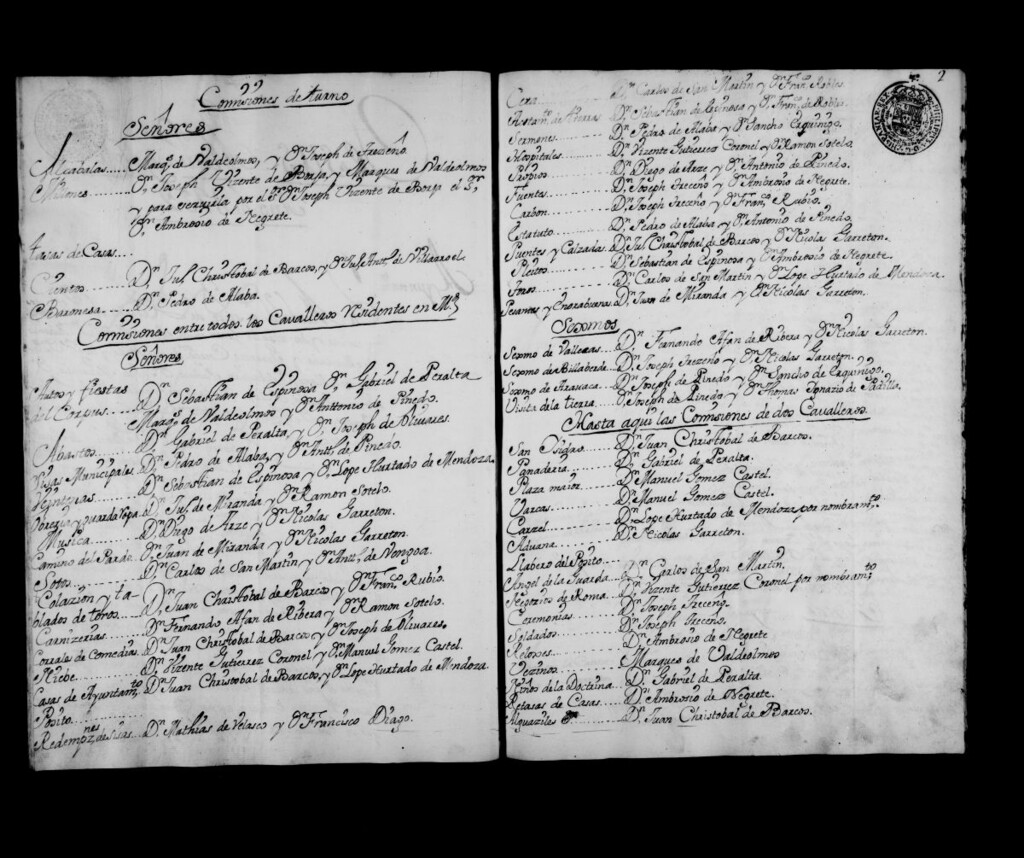 Comisiones de turno
Señores
Alcabalas.... Marq.s de Valdeolmos, y Dn Joseph de Treceño
Millones.... Dn Joseph Vizente de Borja, y Marques de Valdeolmos
y para servirla por el Sr Dn Joseph Vizente de Borja el Sr
Dn Ambrosio de Negrete.
tasas de Casas....
Cientos.... Dn Jul. Christobal de Barcos, y Dn Jul. Antt.o de Villarroel.
Baronesa.... Dn Pedro de Alaba.
Comisiones entre todos los Cavalleros residentes en Md
Señores
Autos y fiestas Dn Sebastian de Espinosa Dn Gabriel de Peralta
del Corpus.... Marq.s de Valdeolmos y Dn Anttonio de Pinedo.
Abastos.... Dn Gabriel de Peralta, y Dn Joseph de Olivares.
Sisas Municipales Dn Pedro de Alaba, y Dn Antt.o de Pinedo.
Dn Sebastian de Espinosa y Dn Lope Hurtado de Mendoza
Obreria y guarda Vega Dn Jul. de Miranda y Dn Ramon Sotelo.
Musica.... Dn Diego de Arze y Dn Nicolas Garreton.
Camino del Pardo. Dn Juan de Miranda y Dn Nicolas Garreton.
Sotos.... Dn Carlos de San Martin y Dn Antt.o de Vengoa.
Colazion y ta-
blados de toros. Dn Juan Christobal de Barcos y Dn Fran.co Rubio.
Carnizerias.... Dn Fernando Afan de Ribera y Dn Ramon Sotelo.
Corrales de Comedias. Dn Juan Christobal de Barcos y Dn Joseph de Olivares.
Niebe.... Dn Vizente Gutierrez Coronel y Dn Manuel Gomez Castel.
Casas de Ayuntam.to Dn Juan Christobal de Barcos, y Dn Lope Hurtado de Mendoza
Posito....
Redempz.nes de sisas.. Dn Mathias de Velasco y Dn Francisco Diago.
2
Cera.... Dn Carlos de San Martin y Dn Fran.co Robles.
Dn Sebastian de Espinosa y Dn Fran.co de Robles.
Sermones.... Dn Pedro de Alaba y Dn Sancho Esquinigo.
Hospitales.... Dn Vizente Gutierrez Coronel y Dn Ramon Sotelo
Propios.... Dn Diego de Arze y Dn Antonio de Pinedo.
Fuentes.... Dn Joseph Treceño y Dn Ambrosio de Negrete.
Carbon.... Dn Joseph Treceño y Dn Fran.co Rubio.
Estatuto.... Dn Pedro de Alaba y Dn Antonio de Pinedo
Puentes y Calzadas Dn Jul. Christobal de Barcos y Dn Nicolas Garreton.
Pleitos.... Dn Sebastian de Espinosa y Dn Ambrosio de Negrete.
Dn Carlos de San Martin y Dn Lope Hurtado de Mendoza.
Pesames y enorabuenas Dn Juan de Miranda y Dn Nicolas Garreton.
Sexmos
Sexmo de Vallecas.... Dn Fernando Afan de Ribera y Dn Nicolas Garreton.
Sexmo de Billaberde.. Dn Joseph Trezeño y Dn Nicolas Garreton.
Sexmo de Aravaca.... Dn Joseph de Pinedo y Dn Sancho de Esquinigo
Visita de la tierra.. Dn Joseph de Pinedo y Dn Thomas Ignazio de Padilla.
Hasta aqui las Comisiones de dos Cavalleros.
San Isidro.... Dn Juan Christobal de Barcos.
Panaderia.... Dn Gabriel de Peralta.
Plaza maior.... Dn Manuel Gomez Castel.
Dn Manuel Gomez Castel.
Carzel.... Dn Lope Hurtado de Mendoza por nombram.to
Aduana.... Dn Nicolas Garreton.
Llabero del Posito....
Angel de la Guarda.. Dn Carlos de San Martin.
Negozios de Roma.. Dn Vizente Gutierrez Coronel por nombram.to
Ceremonias.... Dn Joseph Treceño.
Soldados.... Dn Joseph Treceño.
Reloxes.... Dn Ambrosio de Negrete
Vezinos.... Marques de Valdeolmos
Niños de la Doctrina.. Dn Gabriel de Peralta.
Retasas de Casas.... Dn Ambrosio de Negrete.
Alguaziles.... Dn Juan Christobal de Barcos.